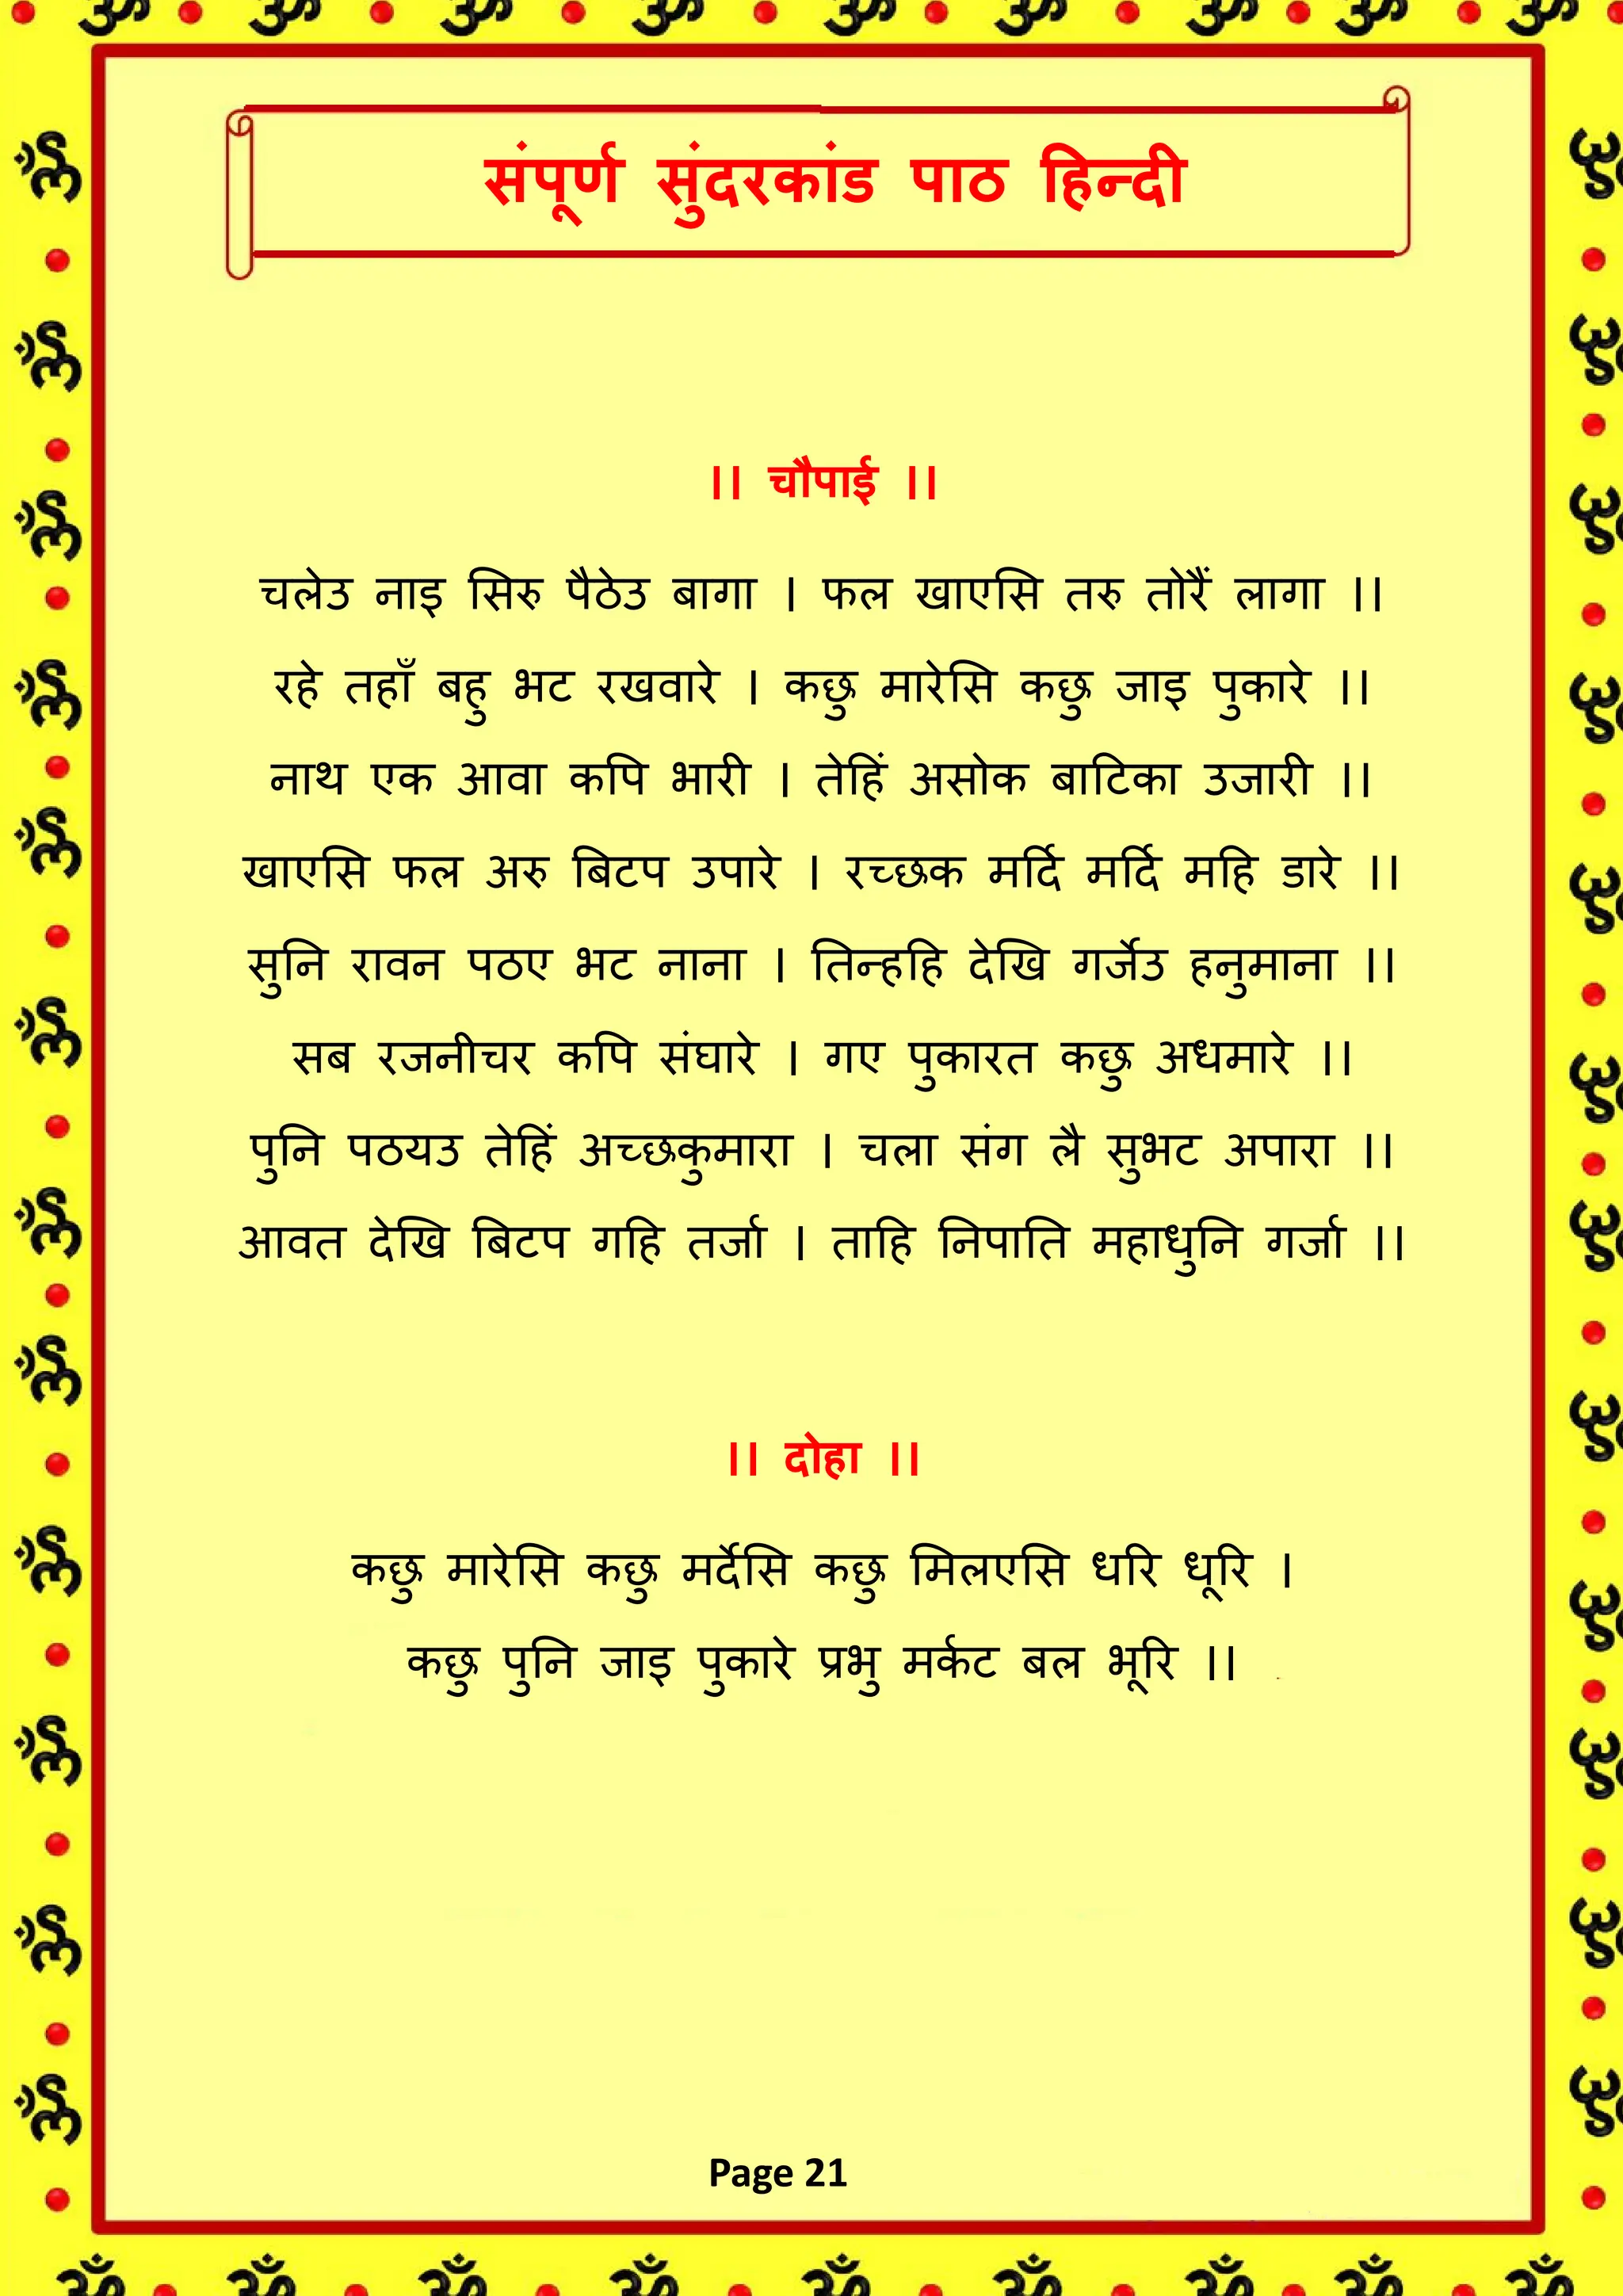 संपूर्ण सुंदरकांड पाठ हिन्दी
।। चौपाई ।।
चलेउ नाइ सिरु पैठेउ बागा । फल खाएसि तरु तोरैं लागा ।।
रहे तहाँ बहु भट रखवारे । कछु मारेसि कछु जाइ पुकारे ।।
नाथ एक आवा कपि भारी । तेहिं असोक बाटिका उजारी ।।
खाएसि फल अरु बिटप उपारे । रच्छक मर्दि मर्दि महि डारे ।।
सुनि रावन पठए भट नाना । तिन्हहि देखि गर्जेउ हनुमाना ।।
सब रजनीचर कपि संघारे । गए पुकारत कछु अधमारे ।।
पुनि पठयउ तेहिं अच्छकुमारा । चला संग लै सुभट अपारा ।।
आवत देखि बिटप गहि तर्जा । ताहि निपाति महाधुनि गर्जा ।।
।। दोहा ।।
कछु मारेसि कछु मर्देसि कछु मिलएसि धरि धूरि ।
कछु पुनि जाइ पुकारे प्रभु मर्कट बल भूरि ।।
Page 21